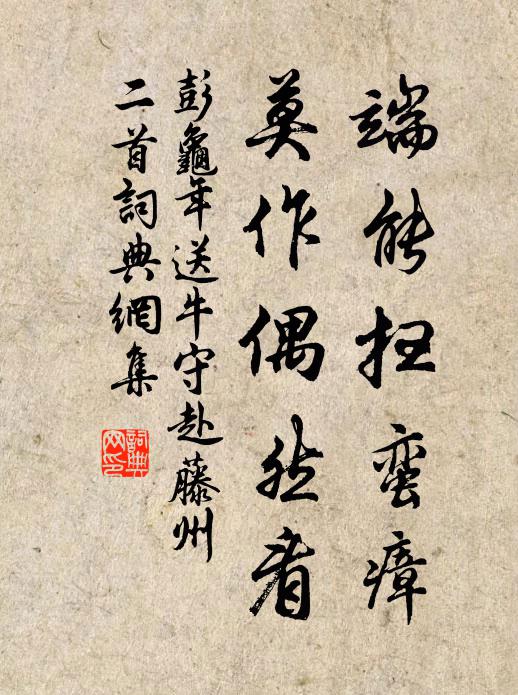 端能扫蛮瘴
莫作偶然看
彭龜年送牛守赴藤州
二首詞典網集
詞典
网印